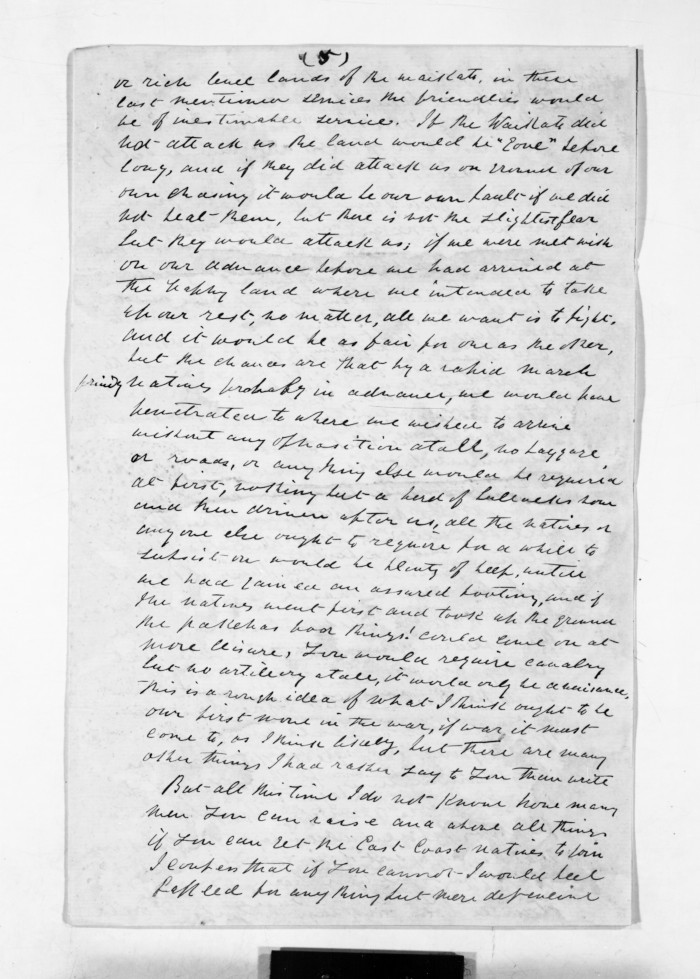 (5)
or rich level lands of the Waikato, in these
last mentioned services the friendlies would
be of inestimable service. If the Waikato did
not attack us the land would be "gone" before
long, and if they did attack us on ground of our
own chosing it would be our own fault if we did
not beat them, but there is not the slightest fear
but they would attack us; if we were met with
on our advance before we had arrived at
the happy land where we intended to take
up our rest, no matter, all we want is to fight,
and it would be as fair for one as the other,
but the chances are that by a rapid march
friendly natives probably in advance, we would have
penetrated to where we wished to arrive
without any opposition atall, no baggage,
or roads, or anything else would be required
at first, nothing but a herd of bullocks now
and then driven after us, all the natives or
anyone else ought to require for a while to
subsist on would be plenty of beef, untill
we had gained an assured footing, and if
the natives went first and took up the ground
the pakehas poor things! could come on at
more leisure, You would require cavalry
but no artillery atall, it would only be a nuisance,
this is a rough idea of what I think ought to be
our first move in the war, if war it must
come to, as I think likely, but there are many
other things I had rather say to You than write
But all this time I do not know how many
men You can raise and above all things
if You can get the East Coast natives to join
I confess that if You cannot I would feel
for anything but mere defensive